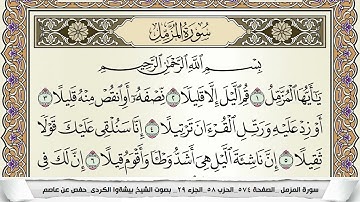 سُورَةُ الْمُزَّمِّلِ
بِسْمِ اللَّهِ الرَّحْمَٰنِ الرَّحِيمِ
يَا أَيُّهَا الْمُزَّمِّلُ ١ قُمِ اللَّيْلَ إِلَّا قَلِيلًا ٢ نِّصْفَهُ أَوِ انقُصْ مِنْهُ قَلِيلًا ٣
أَوْ زِدْ عَلَيْهِ وَرَتِّلِ الْقُرْءَانَ تَرْتِيلًا ٤ إِنَّا سَنُلْقِي عَلَيْكَ قَوْلًا
ثَقِيلًا ٥ إِنَّ نَاشِئَةَ اللَّيْلِ هِيَ أَشَدُّ وَطْئًا وَأَقْوَمُ قِيلًا ٦ إِنَّ لَكَ فِي
سورة المزمل _ الصفحة ٥٧٤_الحزب ٥٨_الجزء ٢٩_ بصوت الشيخ بيشةوا الكردى_ حفص عن عاصم